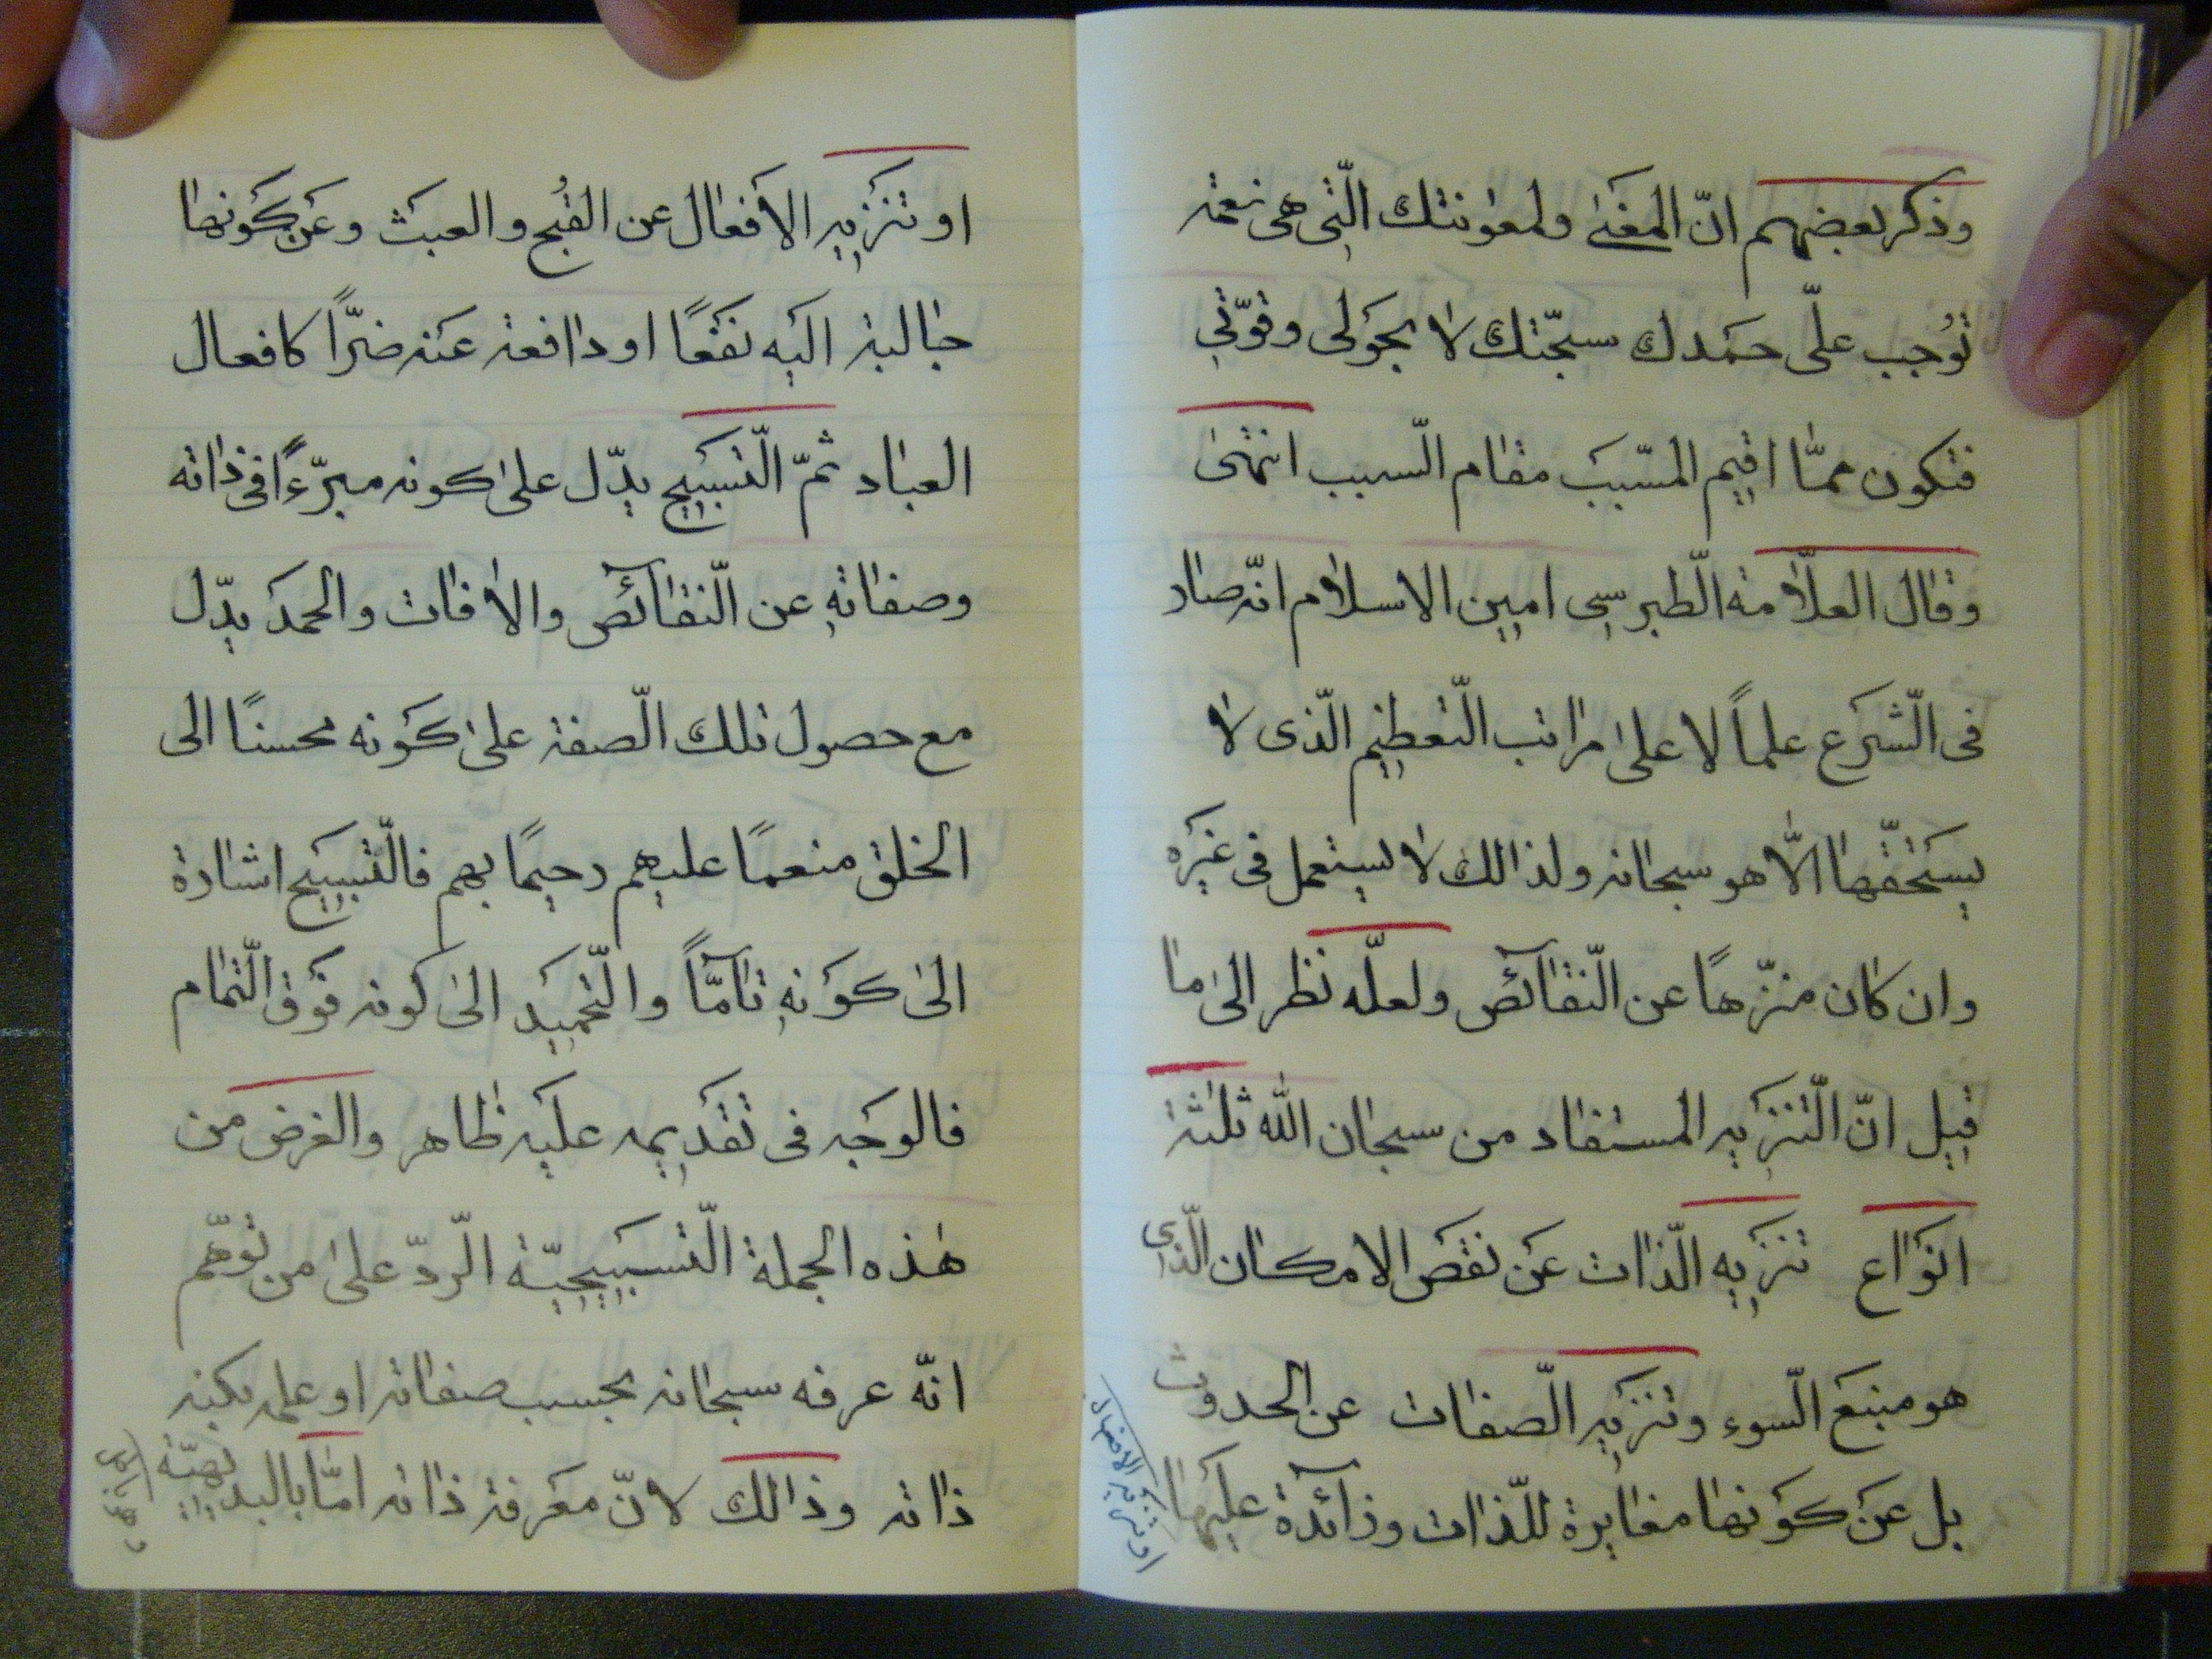 وذكر بعضهم انّ المغنىٰ ولمعونتك الّتى هى نعمة
تُوجب علّى حمدك سبّحتك لا بحولى وقوّتي
فتكون ممّا اقيم المسّبب مقام السّبب انتهىٰ
وقال العلّامة الطّبرسى امين الاسلام انّه صار
فى الشّرع علماً لاعلىٰ مراتب التّعظيم الّذى لا
يستحقّها الّا هو سبحانه ولذالك لا يستعمل فى غيره
وان كان منزّهاً عن النّقآئص ولعلّه نظر الىٰ ما
قيل انّ التّنزيه المستفاد من سبحان الله ثلٰثة
انواع تنزيه الذّات عن نقص الامكان الّذى
هو منبع السّوء وتنزيه الصّفات عن الحدوث
بل عن كونها مغايرة للّذات وزآئدة عليها
او تنزيه الافعال
او تنزيه الأفعال عن القُبح والعبث وعن كونها
جالبة اليه نفعًا او دافعة عنه ضرًّا كافعال
العباد ثمّ التّسبيح يدّل علىٰ كونه مبرّءًا فى ذاته
وصفاتهِ عن النّقآئص والافات والحمد يدّل
مع حصول تلك الصّفة علىٰ كونه محسنًا الى
الخلق منعمًا عليهم رحيمًا بهم فالتّسبيح اشارة
الىٰ كونهِ تآمّاً والتّحميد الىٰ كونه فوق التّمام
فالوجه فى تقديمه عليه ظاهر والغرض من
هٰذه الجملة التّسبيحيّة الرّدّ علىٰ من توهّم
انّه عرفه سبحانه بحسب صفاته او علمه بكنه
ذاته وذالك لانّ معرفة ذاته امّا بالبديهيّة